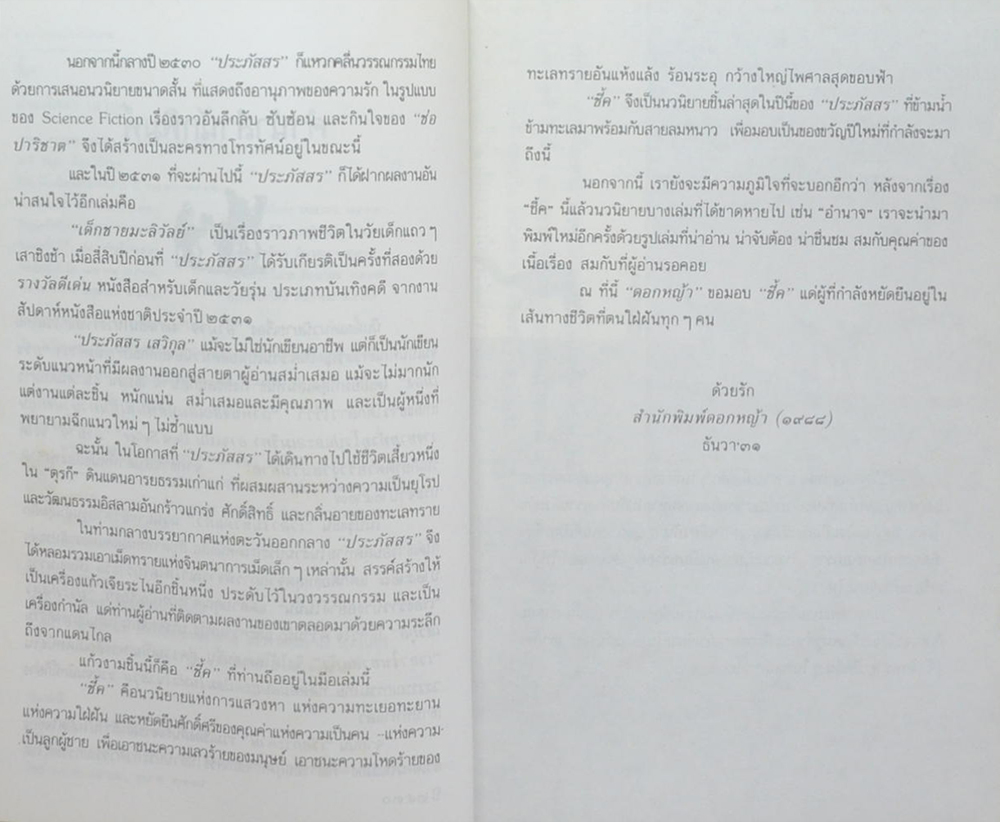 นอกจากนี้กลางปี ๒๕๓๐ “ประภัสสร” ก็แหวกคลื่นวรรณกรรมไทย
ด้วยการเสนอนวนิยายขนาดสั้น ที่แสดงถึงอานุภาพของความรัก ในรูปแบบ
ของ Science Fiction เรื่องราวอันลึกลับ ซับซ้อน และกินใจของ “ช่อ
ปาริชาต” จึงได้สร้างเป็นละครทางโทรทัศน์อยู่ในขณะนี้
และในปี ๒๕๓๑ ที่จะผ่านไปนี้ “ประภัสสร” ก็ได้ฝากผลงานอัน
น่าสนใจไว้อีกเล่มคือ
“เด็กชายมะลิวัลย์” เป็นเรื่องราวภาพชีวิตในวัยเด็กแถวๆ
เสาชิงช้า เมื่อสี่สิบปีก่อนที่ “ประภัสสร” ได้รับเกียรติเป็นครั้งที่สองด้วย
รางวัลดีเด่น หนังสือสำหรับเด็กและวัยรุ่น ประเภทบันเทิงคดี จากงาน
สัปดาห์หนังสือแห่งชาติประจำปี ๒๕๓๑
“ประภัสสร เสวิกุล” แม้จะไม่ใช่นักเขียนอาชีพ แต่ก็เป็นนักเขียน
ระดับแนวหน้าที่มีผลงานออกสู่สายตาผู้อ่านสม่ำเสมอ แม้จะไม่มากนัก
แต่งานแต่ละชิ้น หนักแน่น สม่ำเสมอและมีคุณภาพ และเป็นผู้หนึ่งที่
พยายามฉีกแนวใหม่ๆ ไม่ซ้ำแบบ
ฉะนั้น ในโอกาสที่ “ประภัสสร” ได้เดินทางไปใช้ชีวิตเสี้ยวหนึ่ง
ใน “ตุรกี” ดินแดนอารยธรรมเก่าแก่ ที่ผสมผสานระหว่างความเป็นยุโรป
และวัฒนธรรมอิสลามอันกร้าวแกร่ง ศักดิ์สิทธิ์ และกลิ่นอายของทะเลทราย
ในท่ามกลางบรรยากาศแห่งตะวันออกกลาง “ประภัสสร” จึง
ได้หลอมรวมเอาเม็ดทรายแห่งจินตนาการเม็ดเล็กๆ เหล่านั้น สรรค์สร้างให้
เป็นเครื่องแก้วเจียระไนอีกชิ้นหนึ่ง ประดับไว้ในวงวรรณกรรม และเป็น
เครื่องกำนัล แด่ท่านผู้อ่านที่ติดตามผลงานของเขาตลอดมาด้วยความระลึก
ถึงจากแดนไกล
แก้วงามชิ้นนี้ก็คือ “ชี้ค” ที่ท่านถืออยู่ในมือเล่มนี้
“ชี้ค” คือนวนิยายแห่งการแสวงหา แห่งความทะเยอทะยาน
แห่งความใฝ่ฝัน และหยัดยืนศักดิ์ศรีของคุณค่าแห่งความเป็นคน -แห่งความ-
เป็นลูกผู้ชาย เพื่อเอาชนะความเลวร้ายของมนุษย์ เอาชนะความโหดร้ายของ
ทะเลทรายอันแห้งแล้ง ร้อนระอุ กว้างใหญ่ไพศาลสุดขอบฟ้า
“ชี้ค” จึงเป็นนวนิยายชิ้นล่าสุดในปีนี้ของ “ประภัสสร” ที่ข้ามน้ำ
ข้ามทะเลมาพร้อมกับสายลมหนาว เพื่อมอบเป็นของขวัญปีใหม่ที่กำลังจะมา
ถึงนี้
นอกจากนี้ เรายังจะมีความภูมิใจที่จะบอกอีกว่า หลังจากเรื่อง
“ชี้ค” นี้แล้วนวนิยายบางเล่มที่ได้ขาดหายไป เช่น “อำนาจ” เราจะนำมา
พิมพ์ใหม่อีกครั้งด้วยรูปเล่มที่น่าอ่าน น่าจับต้อง น่าชื่นชม สมกับคุณค่าของ
เนื้อเรื่อง สมกับที่ผู้อ่านรอคอย
ณ ที่นี้ “ดอกหญ้า” ขอมอบ “ชี้ค” แด่ผู้ที่กำลังหยัดยืนอยู่ใน
เส้นทางชีวิตที่ตนใฝ่ฝันทุกๆ คน
ด้วยรัก
สำนักพิมพ์ดอกหญ้า (๑๙๘๘)
ธันวา'๓๑